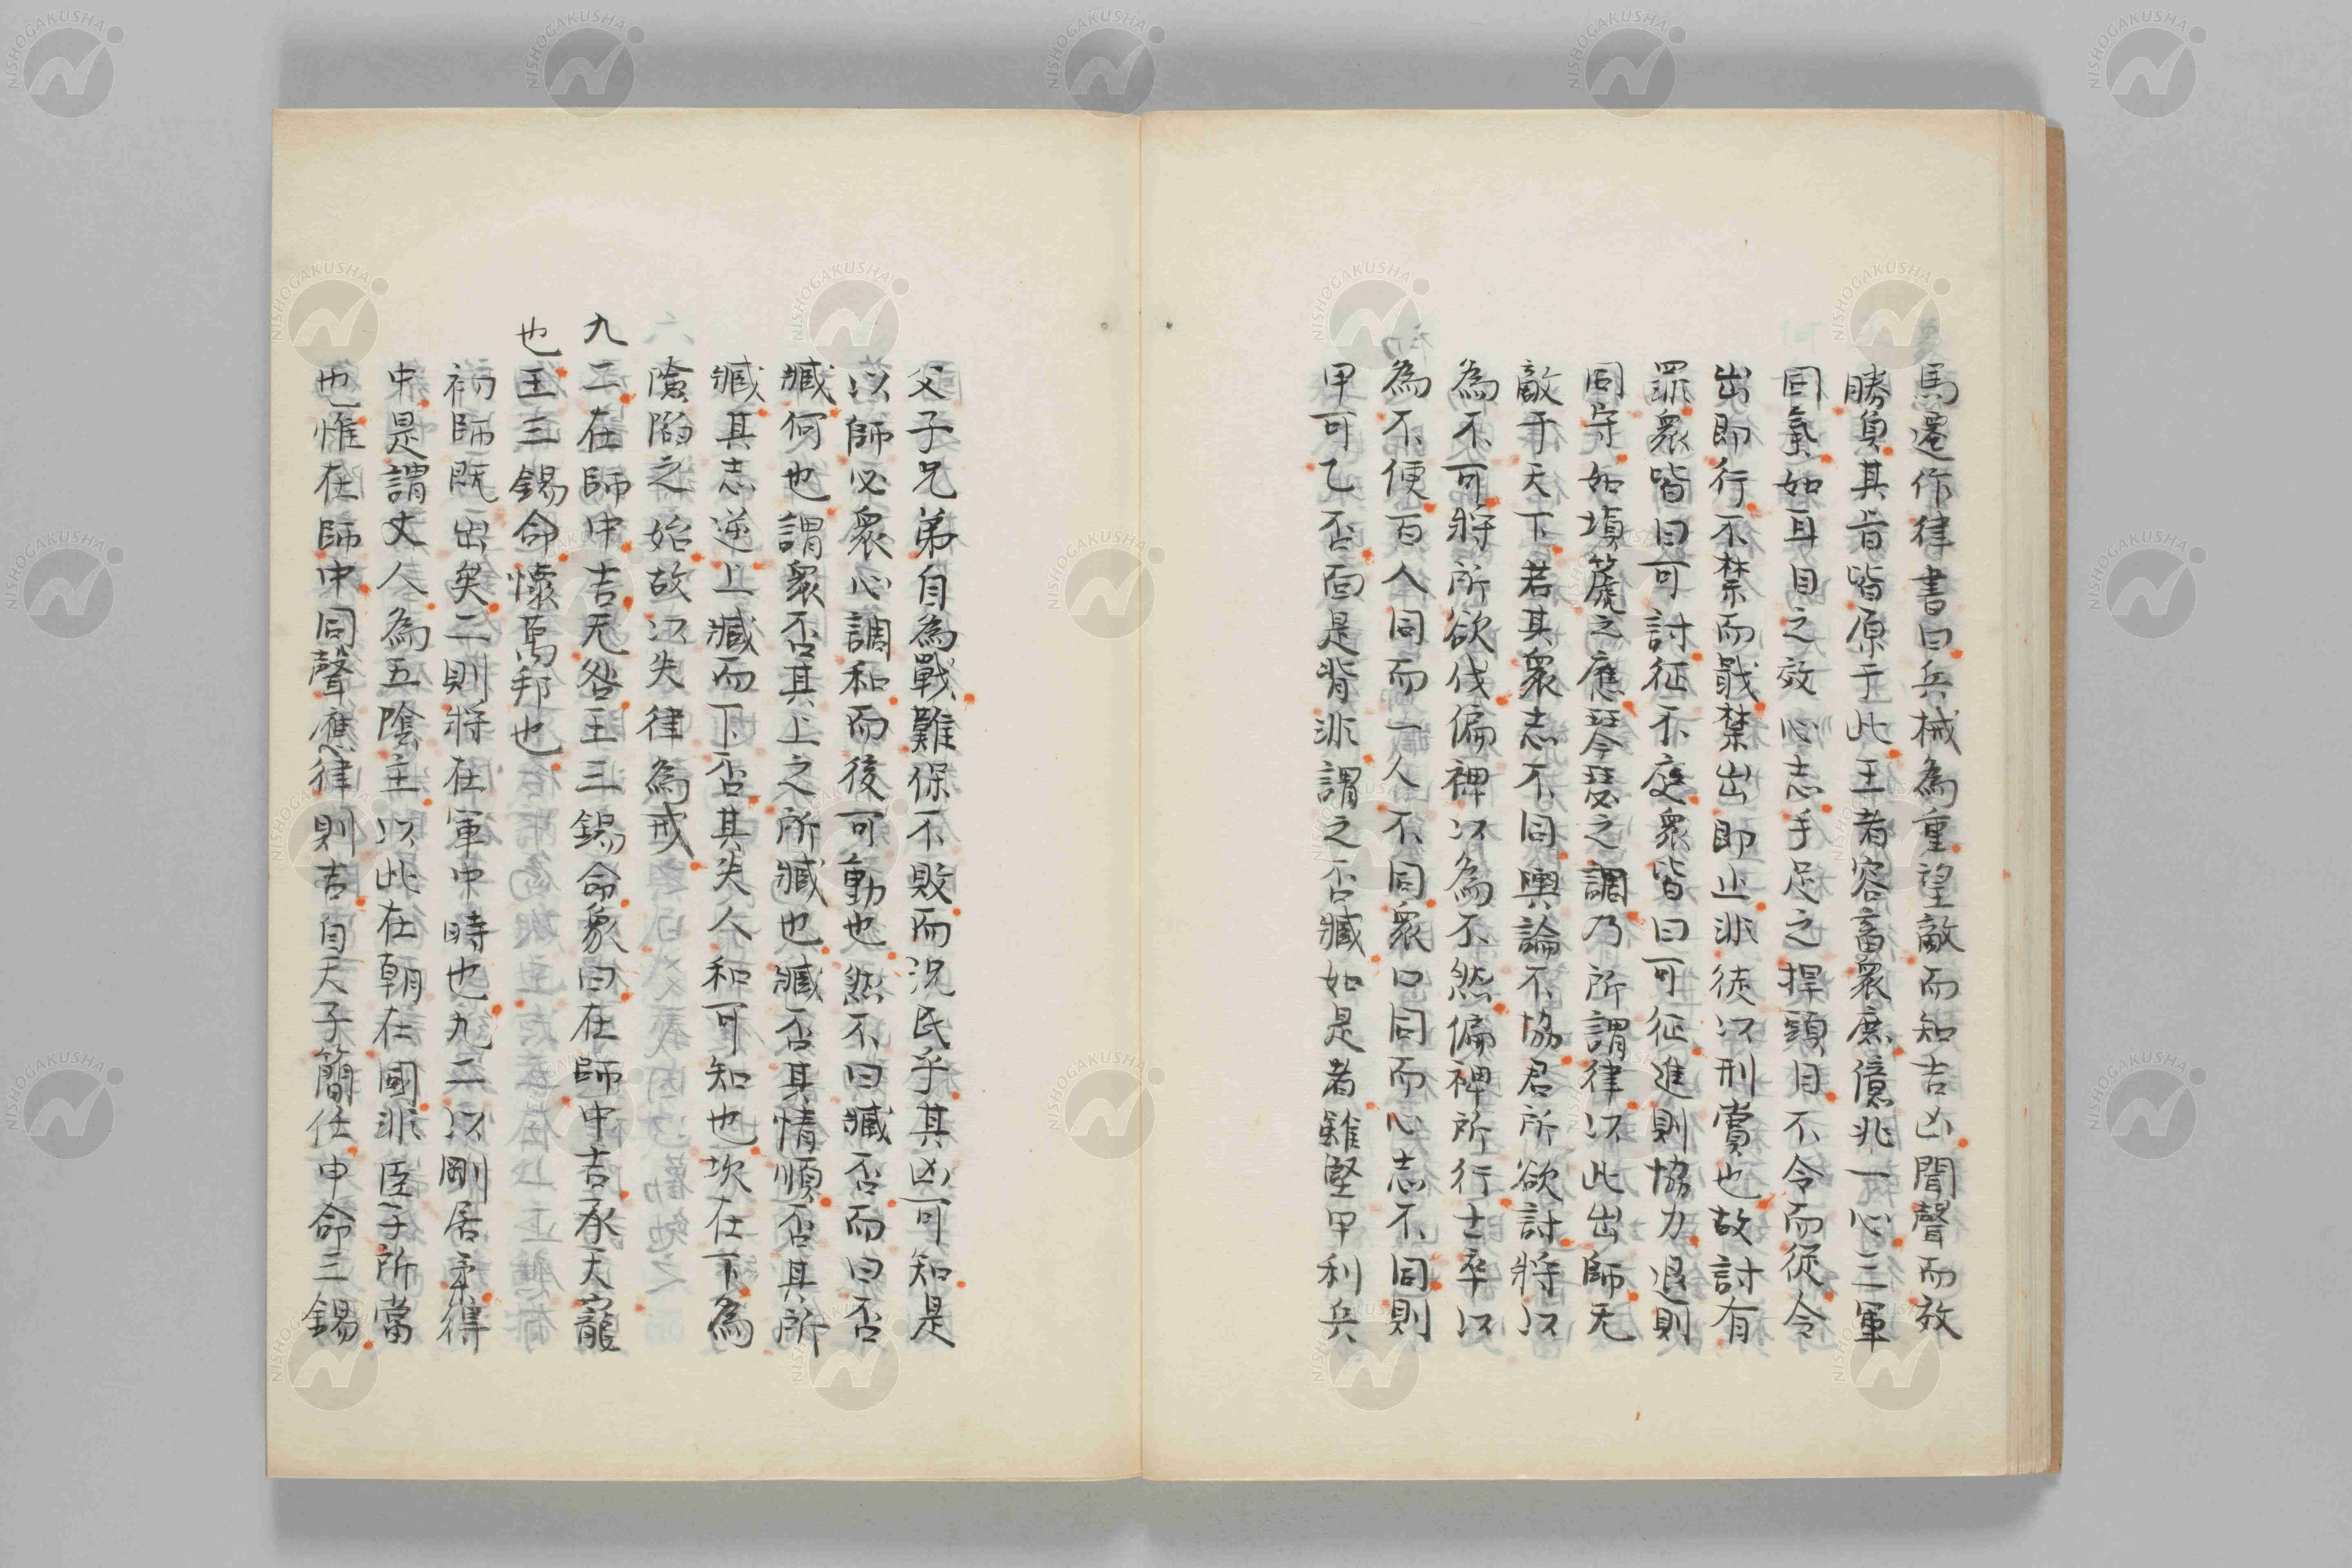 馬遷作律書曰兵械為重望敵而知吉凶聞聲而效
勝負其旨皆原于此王者容畜衆庶億兆一心三軍
同氣如耳目之效心志手足之捍頭目不令而從令
出即行不禁而戢禁出即止非徒以刑賞也故討有
罪衆皆曰可討征不庭衆皆曰可征進則協力退則
同守如塤篪之應琴瑟之調乃所謂律以此出師无
敵于天下若其衆志不同輿論不協君所欲討將以
為不可將所欲伐偏裨以為不然偏裨所行士卒以
為不便百人同而一人不同衆口同而心志不同則
甲可乙否面是背非謂之否臧如是者雖堅甲利兵
父子兄弟自為戰難保不敗而況民乎其凶可知是
以師必衆心調和而後可動也然不曰臧否而曰否
臧何也謂衆否其上之所臧也臧否其情順否其所
臧其志逆上臧而下否其失人和可知也坎在下為
陰陷之始故以失律為戒
九二在師中吉无咎王三錫命象曰在師中吉承天寵
也王三錫命懷萬邦也
初師既出矣二則將在軍中時也九二以剛居柔得
中是謂丈人為五陰主以此在朝在國非臣子所當
也惟在師中同聲應律則吉自天子簡任申命三錫